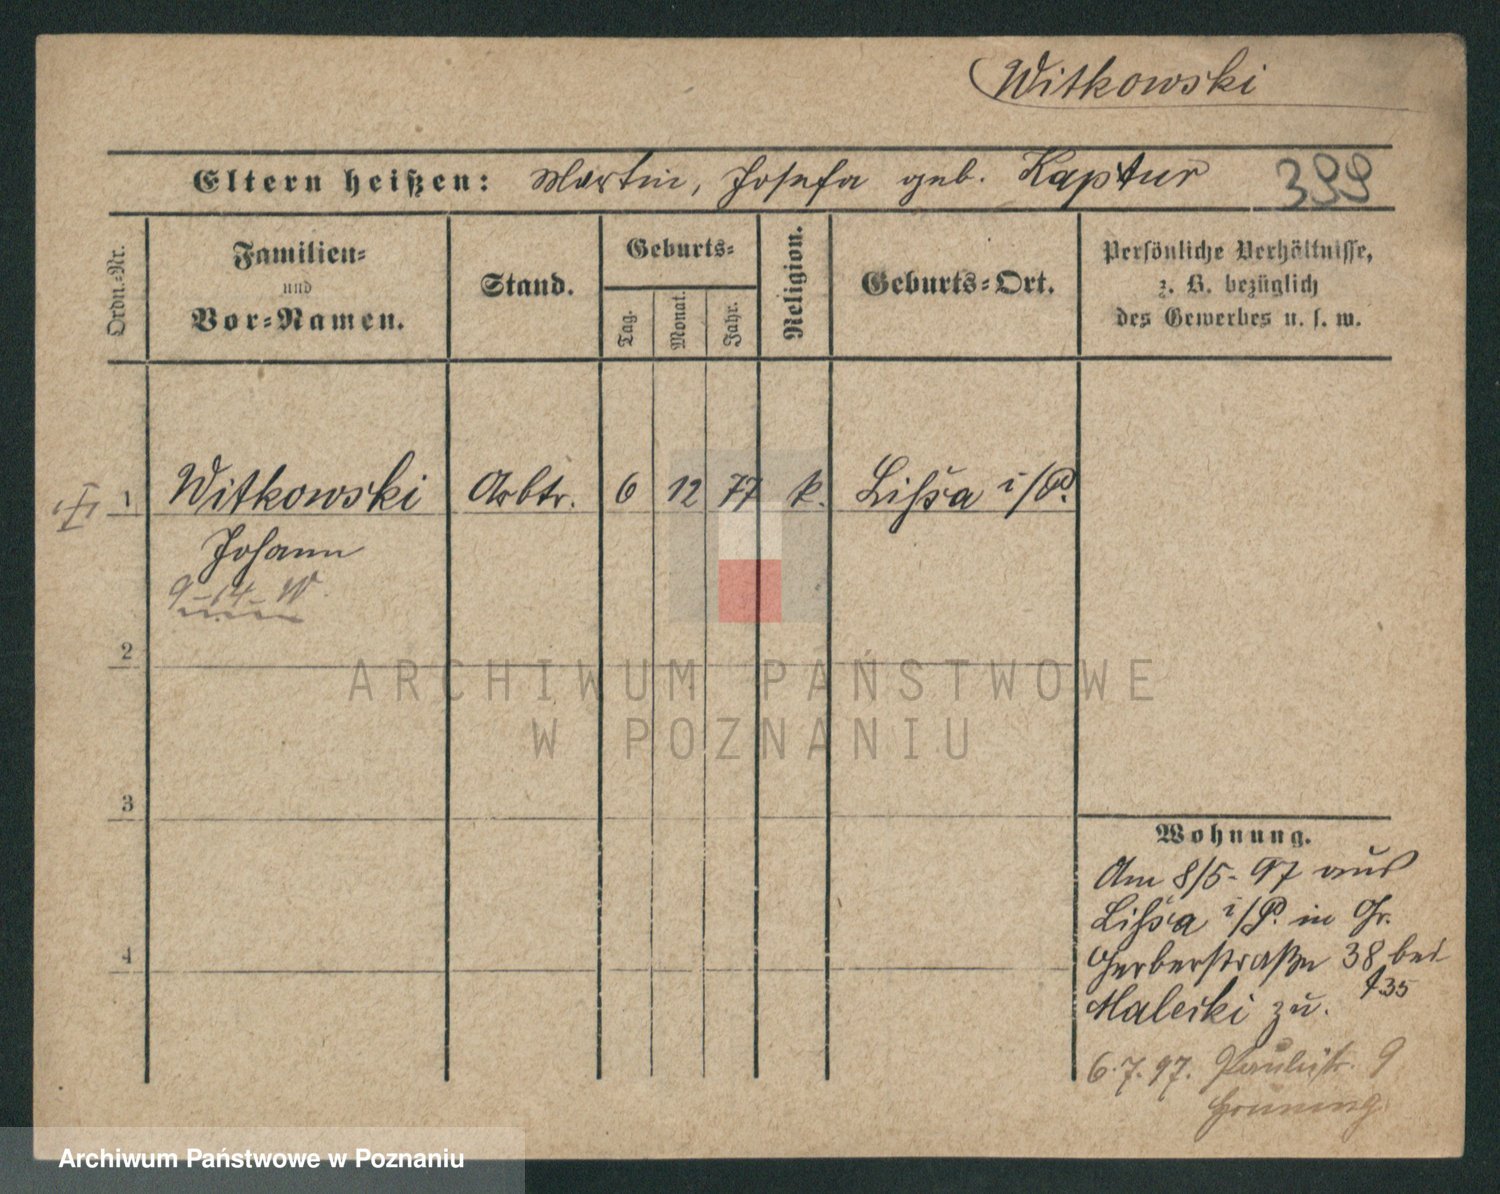 Witkowski
Eltern heißen: Martin, Josefa geb. Kaptur 399
Ordn.-Nr.
Familien-
und
Vor-Namen.
Stand.
Geburts-
Tag.
Monat.
Jahr.
Religion.
Geburts-Ort.
Persönliche Verhältnisse,
z. B. bezüglich
des Gewerbes u. s. w.
1 Witkowski Arbtr. 6 12 77 k. Lissa i/P.
Johann
9-14- W.
2
ARCHIWUM PAŃSTWOWE
W POZNANIU
3
Wohnung.
Am 8/5. 97 aus
Lissa i/P. in Gr.
Gerberstraße 38 bei
Maleiki zu. 435
4
6.7.97. Paulistr. 9
Gruning
Archiwum Państwowe w Poznaniu